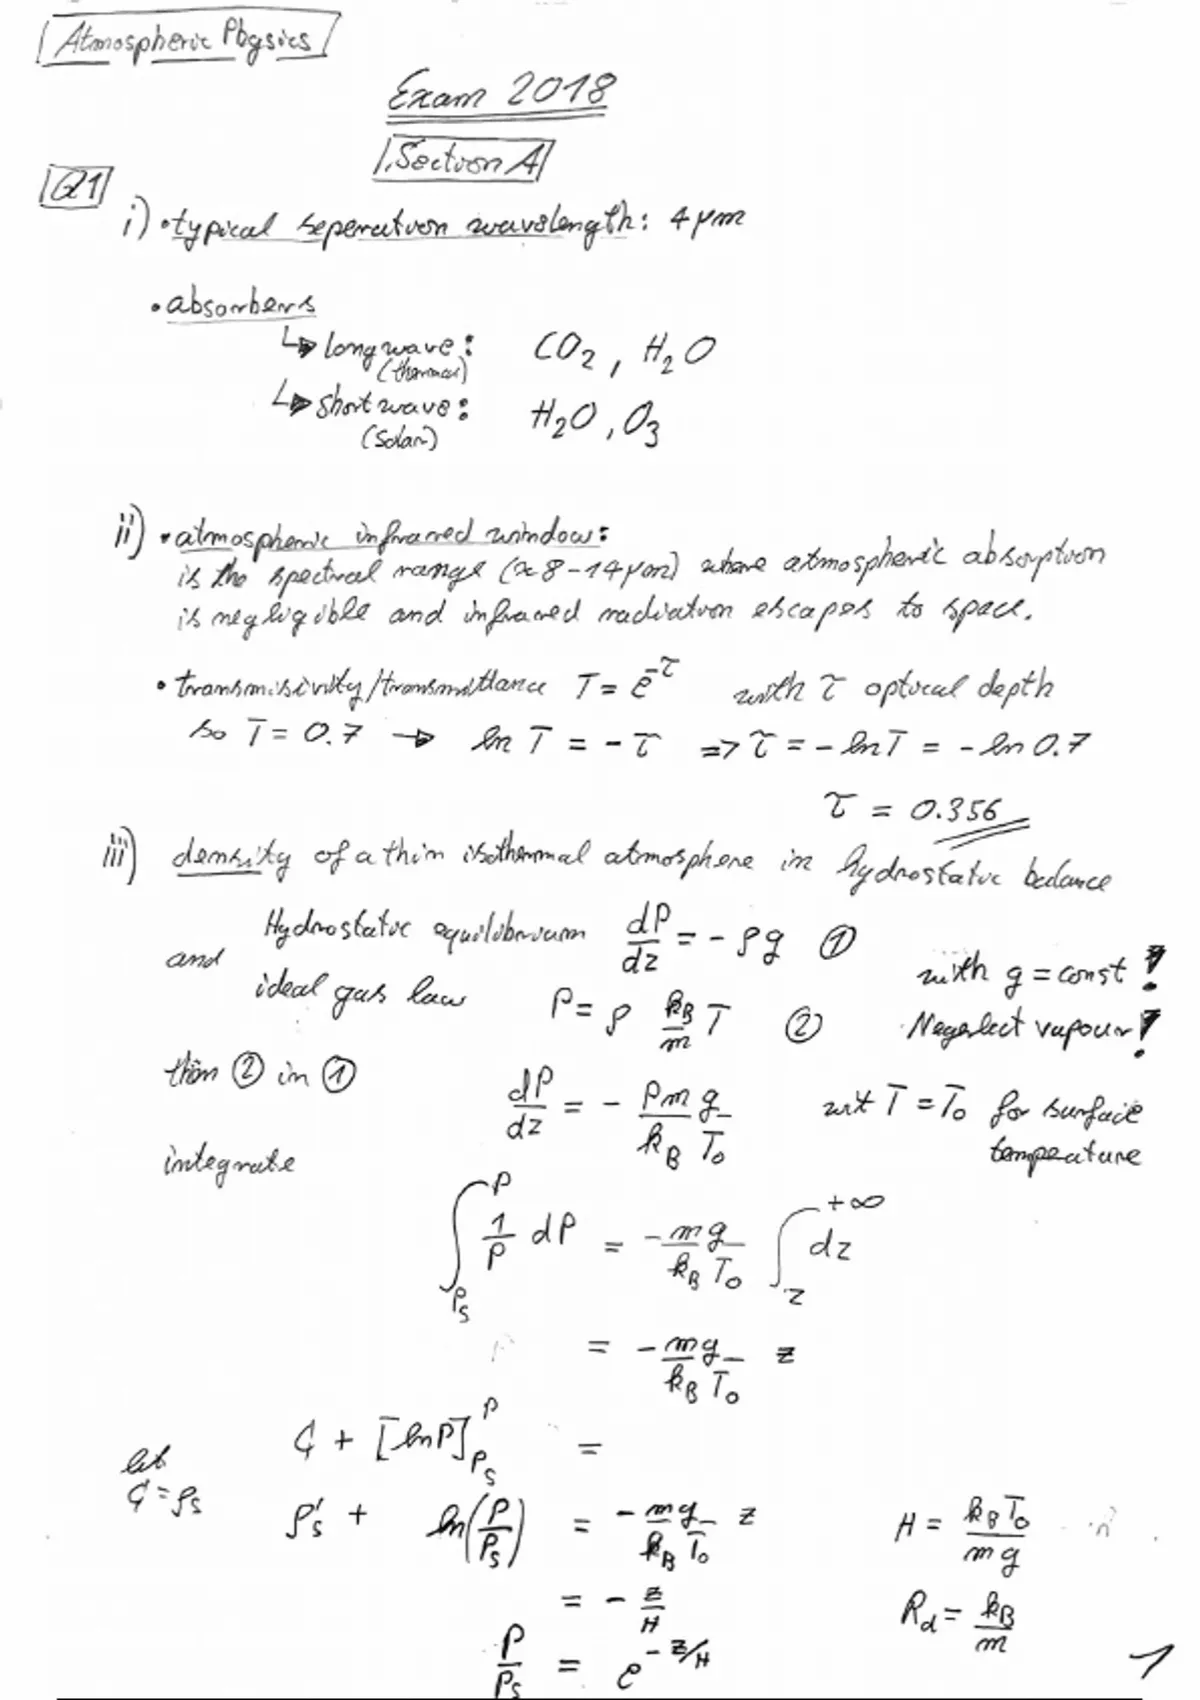 Atmospheric Physics
Exam 2018
Section A
Q1
i) • typical seperation wavelength: 4 μm
• absorbers
↳ longwave: CO₂, H₂O
(thermal)
↳ shortwave: H₂O, O₃
(Solar)
ii) • atmospheric infrared window:
is the spectral range (≈ 8-14 μm) where atmospheric absorption
is negligible and infrared radiation escapes to space.
• transmisivity/transmittance T = e^-τ with τ optical depth
so T = 0.7 → ln T = - τ => τ = - ln T = - ln 0.7
τ = 0.356
iii) density of a thin isothermal atmosphere in hydrostatic balance
Hydrostatic equilibrium dP/dz = - ρg ①
and with g = const!
ideal gas law P = ρ k_B/m T ② Negerlect vapour!
then ② in ① dP/dz = - Pmg/k_B T₀ wit T = T₀ for surface
temperature
integrate
∫_{P_s}^{P} 1/P dP = - mg/k_B T₀ ∫_{z}^{+∞} dz
= - mg/k_B T₀ z
C + [ln P]_{P_s}^{P} =
let
C = ρ_s
ρ_s' + ln(P/P_s) = - mg/k_B T₀ z H = k_B T₀/mg
= - z/H R_d = k_B/m
P/P_s = e^{-z/H}
1